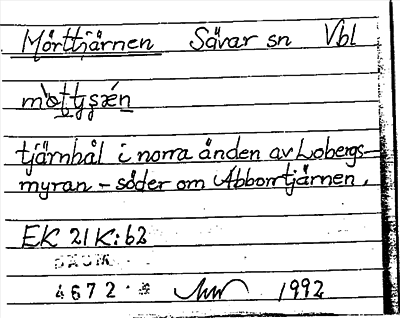 Mörttjärnen Sävar sn Vbl
tjärnhål i norra änden av Lobergs-
myran - söder om Abborrtjärnen.
EK 21K:62
DAUM
4672 1992